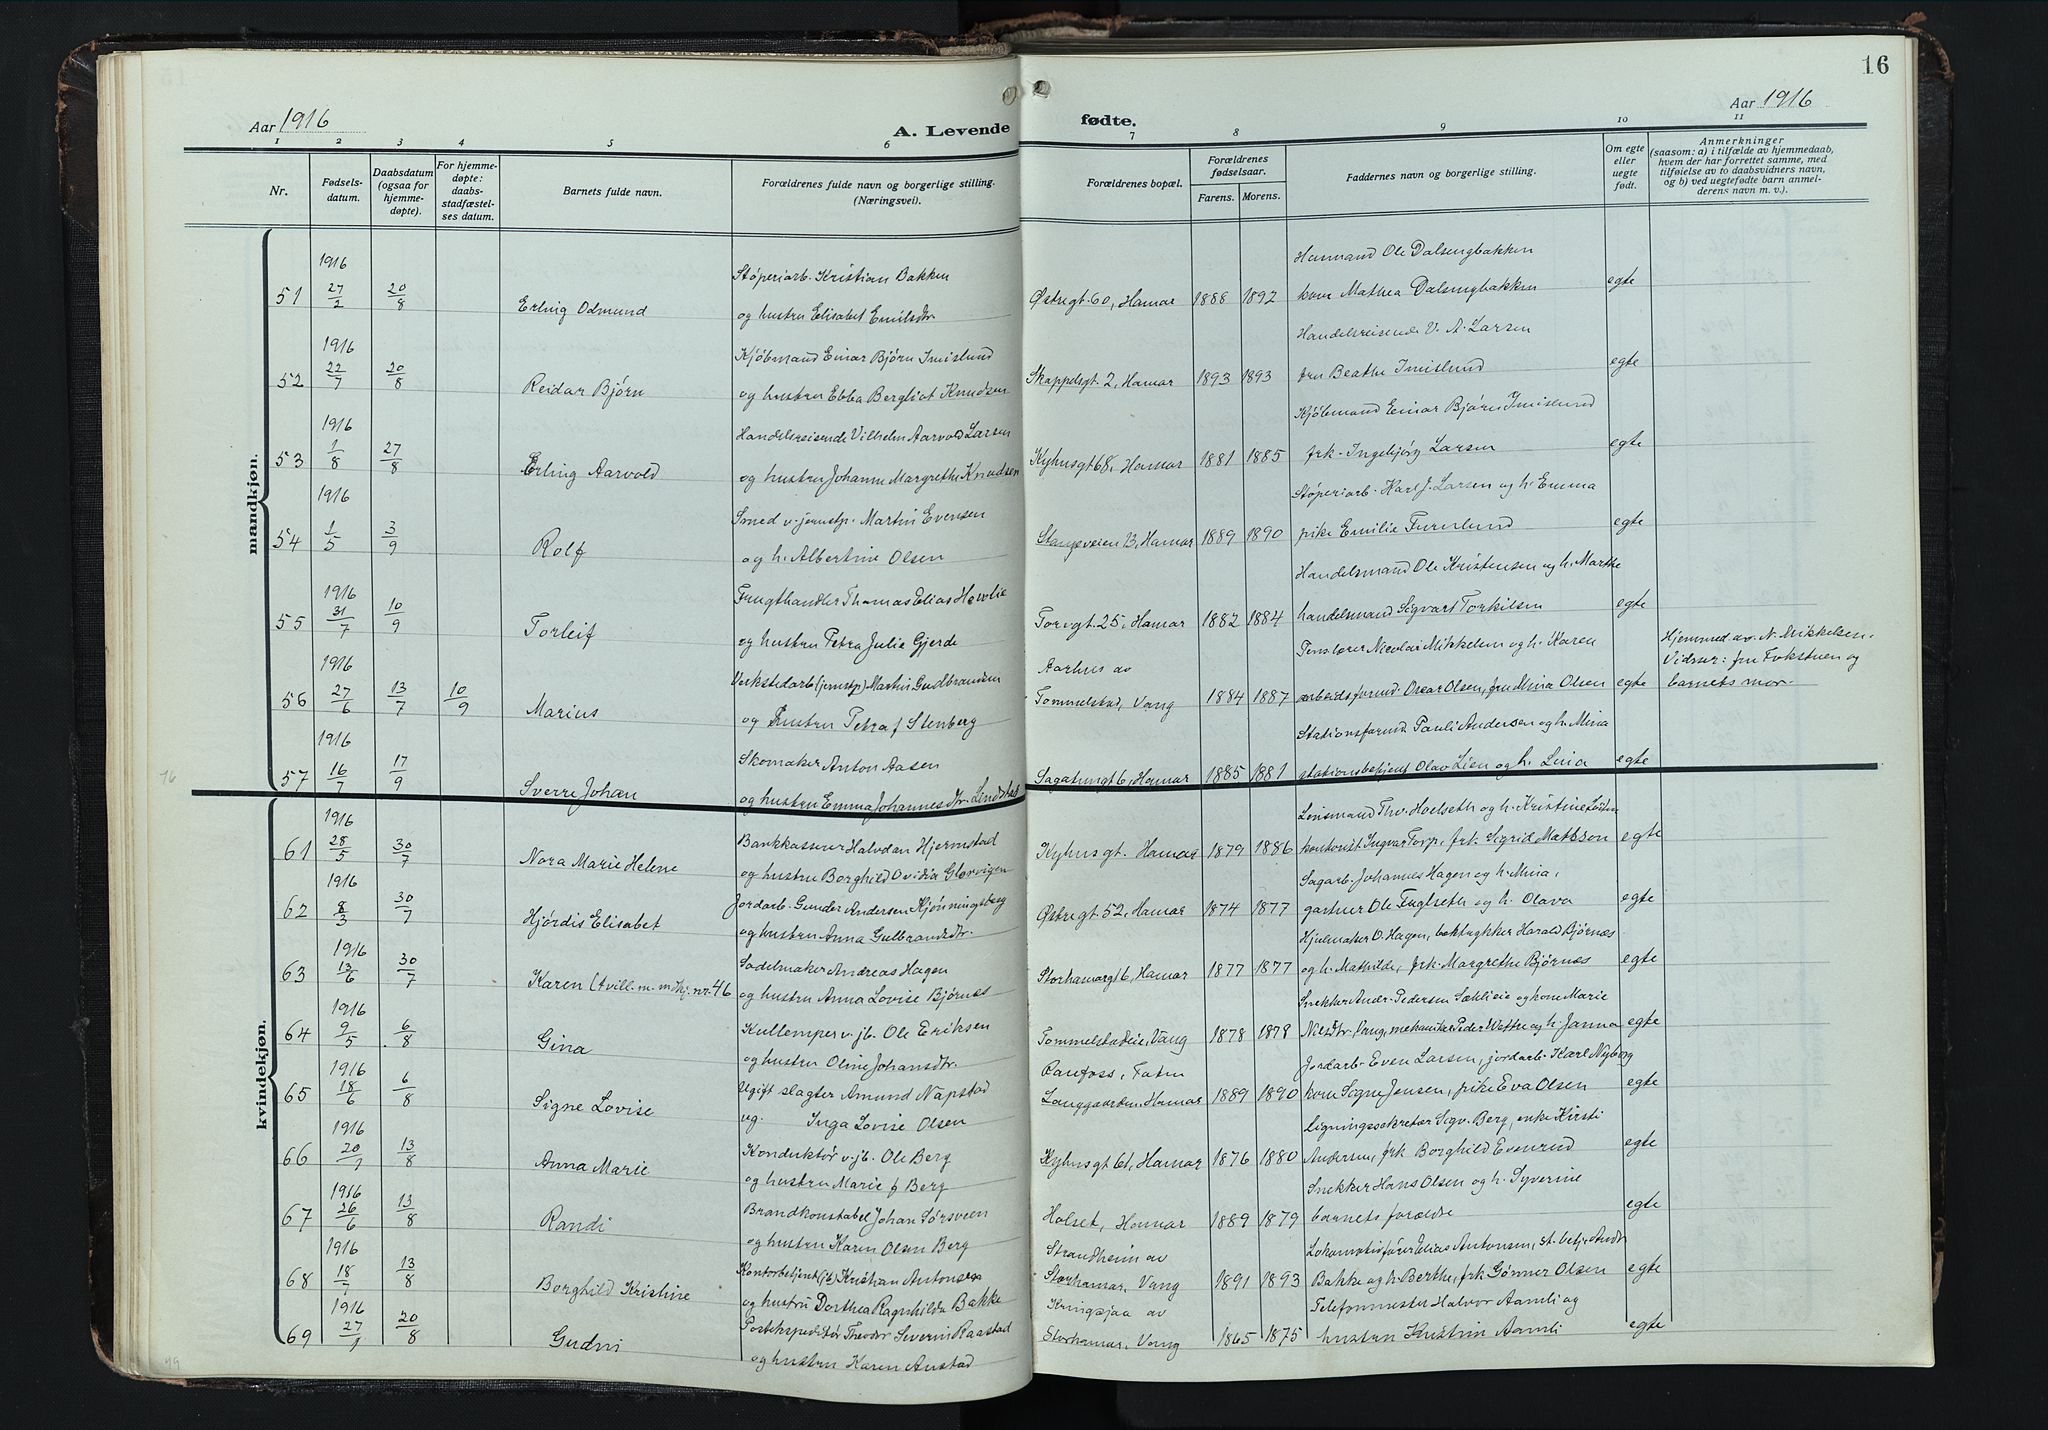 16
Aar 1916
A. Levende
fødte.
Aar 1916
1 2 3 4 5 6 7 8 9 10 11
Nr.
Fødsels-
datum.
Daabsdatum
(ogsaa for
hjemme-
døpte).
For hjemme-
døpte:
daabs-
stadfæstel-
ses datum.
Barnets fulde navn.
Forældrenes fulde navn og borgerlige stilling.
(Næringsvei).
Forældrenes bopæl.
Forældrenes
fødselsaar.
Farens. Morens.
Faddernes navn og borgerlige stilling.
Om egte
eller
uegte
født.
Anmerkninger
(saasom: a) i tilfælde av hjemmedaab,
hvem der har forrettet samme, med
tilføielse av to daabsvidners navn,
og b) ved uegtefødte barn anmel-
derens navn m. v.).
mandkjøn.
1916 Støperiarb. Kristian Bakken Ole Dalsengbakken
51 27/2 20/8 Erling Odmund og hustru Elisabet Emilsdtr. Østregt. 60, Hamar 1888 1892 kone Mathea Dalsengbakken egte
1916 Kjøbmand Einar Bjørn Imislund Handelsreisende V. A. Larsen
52 22/7 20/8 Reidar Bjørn og hustru Ebba Bergliot Knudsen Skappelsgt. 2, Hamar 1893 1893 fru Beathe Imislund egte
1916 Handelsreisende Vilhelm Aarvold Larsen Kjøbmand Einar Bjørn Imislund
53 1/8 27/8 Erling Aarvold og hustru Johanne Margrethe Knudsen Kyhnsgt 68, Hamar 1881 1885 frk. Ingebjørg Larsen egte
1916 Smed v. jernstp. Martin Evensen Støperiarb. Karl J. Larsen og h. Emma
54 1/5 3/9 Rolf og h. Albertine Olsen Stangeveien 13, Hamar 1889 1890 pike Emilie Furulund egte
1916 Frugthandler Thomas Elias Handelsmand Ole Kristensen og h. Marthe
55 31/7 10/9 Torleif og hustru Petra Julie Gjerde Torvgt. 25, Hamar 1882 1884 handelsmand Sigvart Torkilsen egte
1916 Verkstedarb (jernstp) Martin Gudbrandsen Aarhus av Nicolai Mikkelsen og h. Karen Hjemmed. av N. Mikkelsen.
Vidner: fru Fokstuen og
56 27/6 13/7 10/9 Marius og hustru Petra f Stenberg Tommelstad, Vang 1884 1887 arbeidsformd. Oscar Olsen, fru Mina Olsen egte barnets mor.
1916 Skomaker Anton Aasen Stationsformd. Pauli Andersen og h. Mina
57 16/7 17/9 Sverre Johan og hustru Emma Johannesdtr. Lindstad Sagatungt 6, Hamar 1885 1881 stationsbetjent Olav Lien og h. Lina egte
kvindekjøn.
1916 Bankkasserer Halvdan Hjermstad Lensmand Thv. Hoelseth og h. Kristine
61 28/5 30/7 Nora Marie Helene og hustru Borghild Ovidia Glørvigen Kyhnsgt. Hamar 1879 1886 kontorist Ingvar Torp, frk. Sigrid Mattsson egte
1916 Jordarb. Gunder Andersen Kjønningsberg Sagarb. Johannes Hagen og h. Mina,
62 8/3 30/7 Hjørdis Elisabet og hustru Anna Gulbrandsdtr. Østregt. 52, Hamar 1874 1877 gartner Ole Fuglseth og h. Olava egte
1916 Sadelmaker Andreas Hagen Hjulmaker O. Hagen, boktrykker Harald Bjørnæs
63 13/6 30/7 Karen (tvill. m. mdkj. nr. 46 og hustru Anna Lovise Bjørnæs Storhamargt 6, Hamar 1877 1877 og h. Mathilde, frk. Margrethe Bjørnæs egte
1916 Kullemper v. jb. Ole Eriksen Snekker Andr. Pedersen Sæhlieie og kone Marie
64 9/5 6/8 Gina og hustru Oline Johansdtr. Tommelstadeie, Vang 1878 1878 Nilsdtr. Vang, mekaniker Peder Wettre og h. Janna egte
1916 Ugift slagter Amund Napstad Ranefoss, Faten Jordarb. Even Larsen, jordarb. Karl Nyborg
65 18/6 6/8 Signe Lovise ug. Inga Lovise Olsen Langgaarden, Hamar 1889 1890 kone Signe Jensen, pike Eva Olsen egte
1916 Konduktør v. jb. Ole Berg Ligningssekretær Sigv. Berg, enke Kirsti
66 20/7 13/8 Anna Marie og hustru Marie f Berg Kyhnsgt 61, Hamar 1876 1880 Andersen, frk Borghild Evenrud egte
1916 Brandkonstabel Johan Sørsveen Snekker Hans Olsen og h. Syverine
67 26/6 13/8 Randi og hustru Karen Olsen Berg Holset, Hamar 1889 1879 barnets forældre egte
1916 Kontorbetjent (jb) Kristian Antonsen Strandheim av Lokomotivfører Elias Antonsen, st. betj. Andr
68 18/7 13/8 Borghild Kristine og hustru Dorthea Ragnhilda Bakke Storhamar, Vang 1891 1893 Bakke og h. Berthe, frk Gønner Olsen egte
1916 Postekspeditør Theodor Severin Raastad Kringsjaa av Telefonmester Halvor Aamli og
69 27/7 20/8 Gudni og hustru Karen Anstad Storhamar, Vang 1865 1875 hustru Kristin Aamli egte